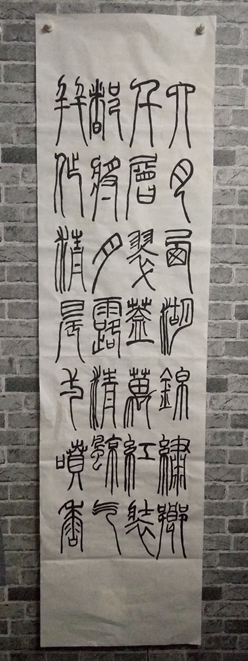 六月西湖錦繡鄉
千層翠蓋萬紅裝
都將月露清涼气
并作清晨一噴香